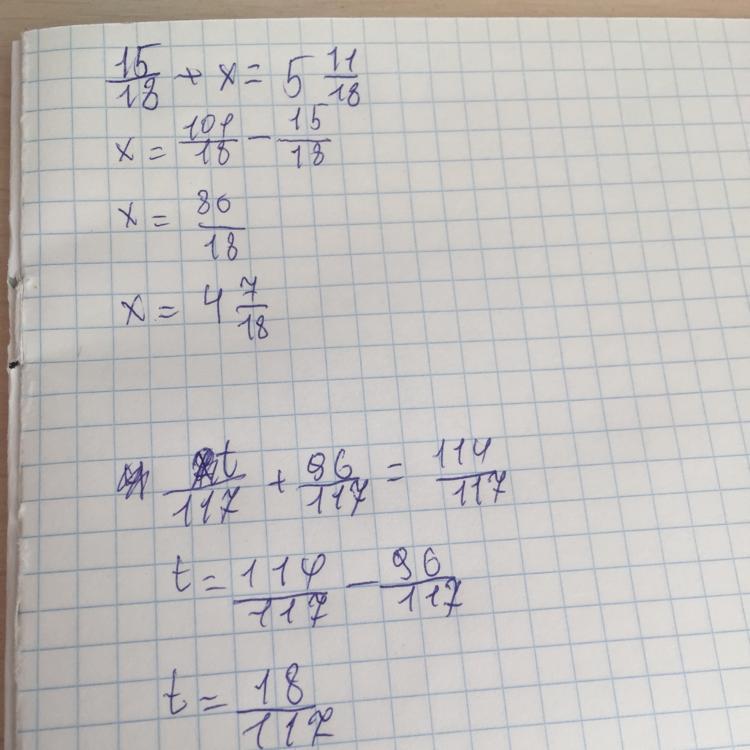 15/18 + x = 5 11/18
x = 101/18 - 15/18
x = 86/18
x = 4 7/18
t/117 + 96/117 = 114/117
t = 114/117 - 96/117
t = 18/117